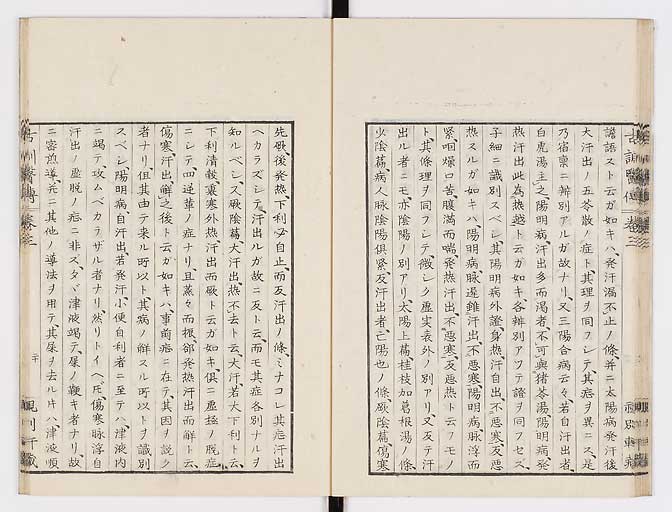 譫語スト云ガ如キハ、発汗漏不止ノ條、并ニ太陽病発汗後
大汗出ノ五苓散ノ症ト其理ヲ同フシテ其症ヲ異ニス是
乃宿稟ニ辨別アルガ故ナリ、又三陽合病云々若自汗出者、
白虎湯主之、陽明病、汗出多而渇者、不可與猪苓湯、陽明病、発
熱汗出此為熱越ト云ガ如キ各辨別アツテ諸ヲ同フセズ、
子細ニ識別スベシ、其陽明病外證身熱汗自出不悪寒、反悪
熱スルガ如キハ陽明病、脉遅雖汗出不悪寒、陽明病脉浮而
緊咽燥口苦腹満而喘、発熱汗出、不悪寒、反悪熱ト云フモノ
ト其條理ヲ同フシテ微シク虚実表外ノ別アリ又反テ汗
出ル者ニモ亦陰陽ノ別アリ太陽上篇桂枝加葛根湯ノ條、
少陰篇病人脉陰陽倶緊、反汗出者亡陽也ノ條、厥陰篇傷寒
先厥後発熱下利必自止而反汗出ノ條ミナコレ其症汗出
ベカラズシテ汗出ルガ故ニ反ト云、而モ其症各別ナルヲ
知ルベシ、又厥陰篇、大汗出熱不去ト云、大汗若大下利ト云、
下利清穀裏寒外熱汗出而厥ト云ガ如キ倶ニ虚極ノ脱症
ニシテ四逆輩ノ症ナリ且蒸々而振却発熱汗出而解ト云、
傷寒汗出解之後ト云ガ如キハ、事前症ニ在テ其因ヲ説ク
者ナリ、但其由テ来ル所以ト其病ノ解スル所以トヲ識別
スベシ、陽明病、自汗出、若発汗小便自利者ニ至テハ、津液内
ニ竭テ攻ムベカラザル者ナリ然リトイヘ𪜈傷寒脉浮自
汗出ノ虚脱ノ症ニ非ス、タヾ津液竭テ屎ノ鞕キ者ナリ故
ニ密煎導、并ニ其他ノ導法ヲ用テ其屎ヲ去ル片ハ、津液順
卷三